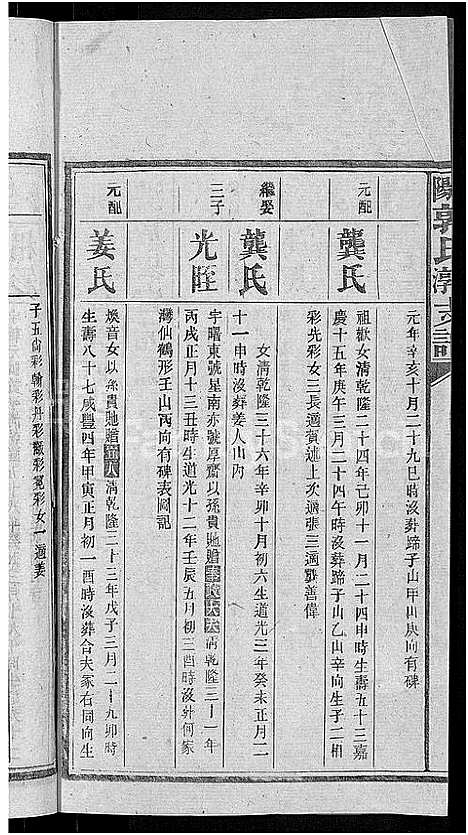 陽郭氏湻六譜
元年辛亥十月二十九巳時沒葬蹄子山甲山庚向有碑
元配
龔氏
祖歡女清乾隆二十四年己卯十一月二十四申時生壽五十三嘉
慶十五年庚午三月二十四午時沒葬蹄子山乙山辛向生子二相
彩先彩女三長適賀述上次適張三適戰善偉
繼娶
龔氏
女清乾隆三十六年辛卯十月初六生道光三年癸未正月二
十一申時沒葬姜人山內
三子
光旺
字曙東號星南亦號厚齋以孫貴貤贈奉政大夫清乾隆三十一年
丙戌正月十三丑時生道光十二年壬辰五月初三酉時沒葬何家
灣仙鶴形壬山丙向有碑表圖記
元配
姜氏
煥音女以孫貴貤贈宜人清乾隆三十三年戊子三月二十九卯時
生壽八十七咸豐四年甲寅正月初一酉時沒葬合夫冢右同向生
子五尚彩翰彩丹彩 彩寬彩女一適姜